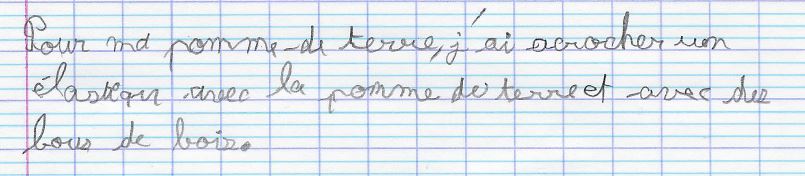 Pour ma pomme-de terre, j'ai acrocher un
élastique avec la pomme de terre et avec des
bous de bois.